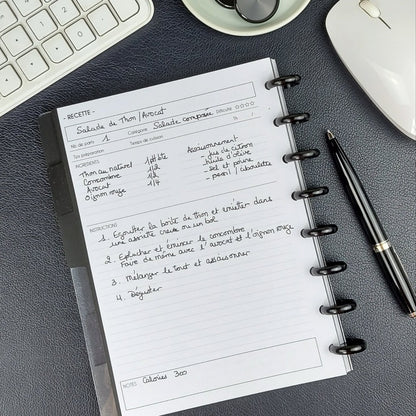 - RECETTE -
Salade de Thon / Avocat
Nb de parts 1 Catégorie Salade composée Difficulté ☆☆☆☆
Tps préparation Temps de cuisson
INGRÉDIENTS
Thon au naturel 1 bte
Concombre 1/2
Avocat 1/2
Oignon rouge 1/4
Assaisonnement
- jus de citron
- huile d'olive
- Sel et poivre
- persil / ciboulette
INSTRUCTIONS
1. Egoutter la boîte de thon et émietter dans
une assiette creuse ou un bol
2. Eplucher et émincer le concombre,
Faire de même avec l'avocat et l'oignon rouge
3. Mélanger le tout et assaisonner
4. Déguster
NOTES Calories 300